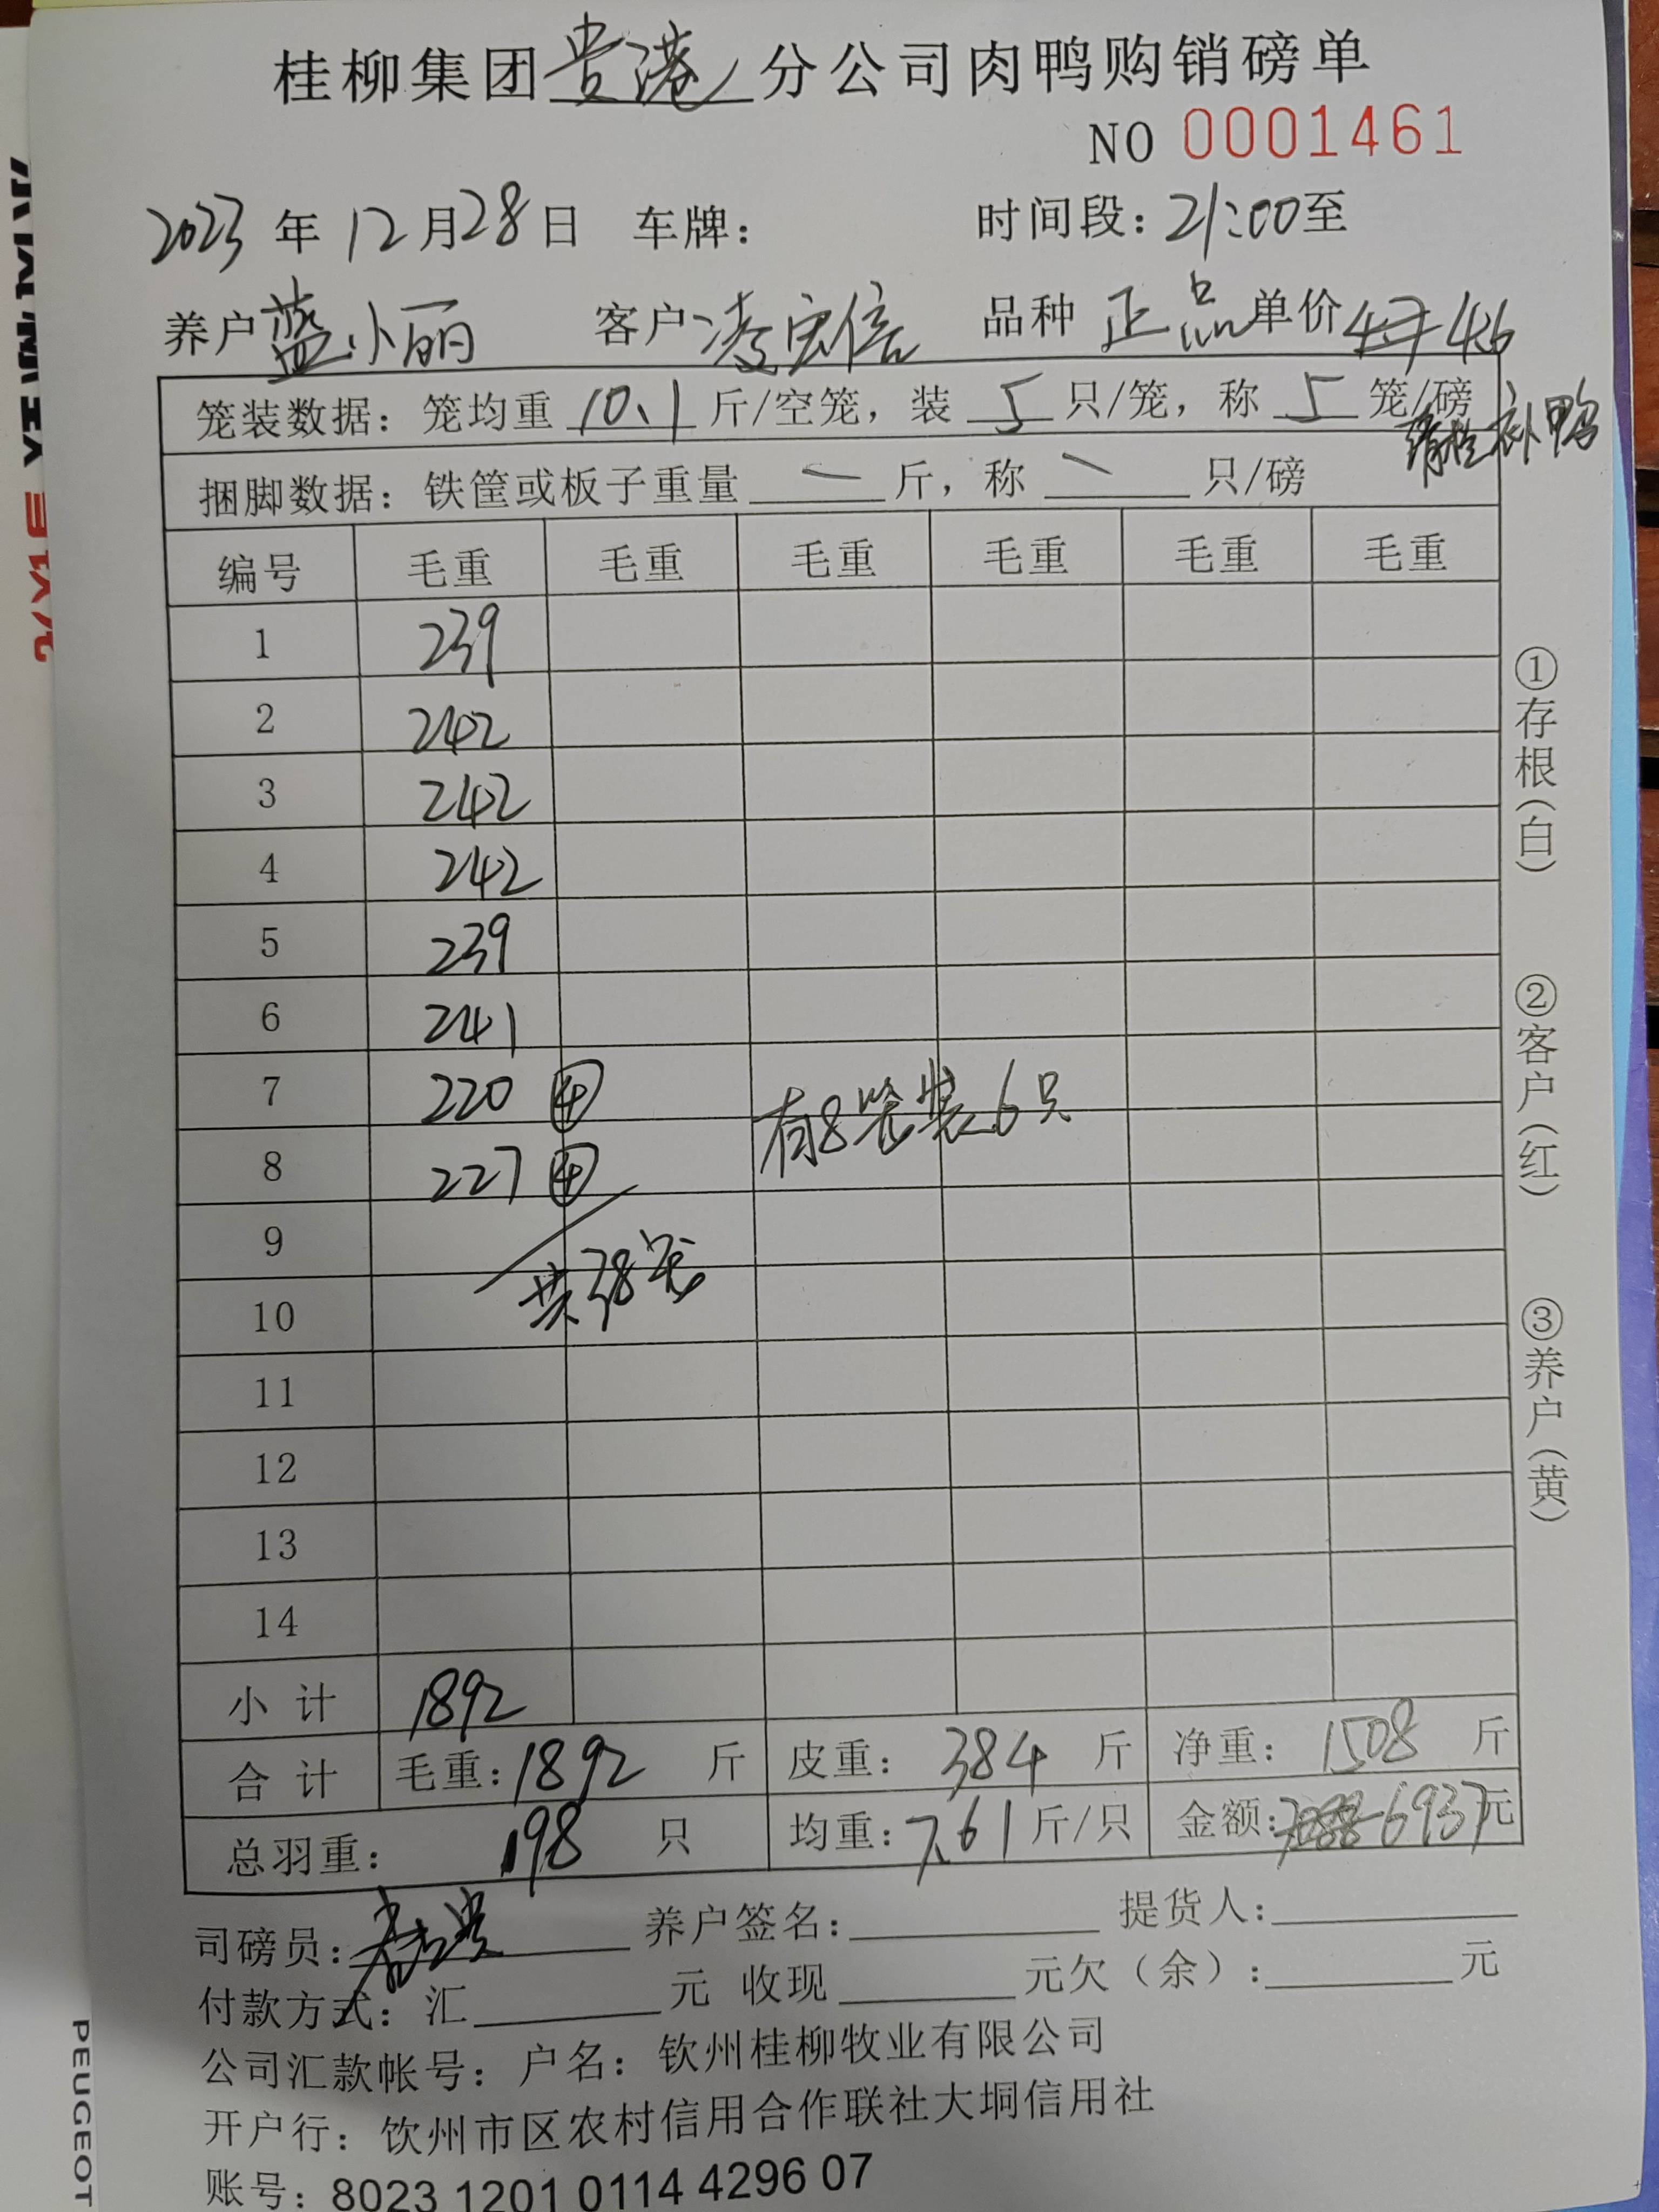 桂柳集团贵港分公司肉鸭购销磅单
NO 0001461
2023年12月28日 车牌: 时间段: 21:00至
养户蓝小丽 客户凌宏信 品种 正品 单价 4.7 4.6
笼装数据: 笼均重 10.1 斤/空笼, 装 5 只/笼, 称 5 笼/磅
补鸭
捆脚数据: 铁筐或板子重量 — 斤, 称 — 只/磅
编号 毛重 毛重 毛重 毛重 毛重 毛重
1 239
2 242
3 242
4 242
5 239
6 241
7 220 ④ 有8笼装6只
8 227 ④
9
共38笼
10
11
12
13
14
小计 1892
合计 毛重: 1892 斤 皮重: 384 斤 净重: 1508 斤
总羽重: 198 只 均重: 7.61 斤/只 金额: 6937元
司磅员: 养户签名: 提货人:
付款方式: 汇 元 收现 元欠(余): 元
公司汇款帐号: 户名: 钦州桂柳牧业有限公司
开户行: 钦州市区农村信用合作联社大垌信用社
账号: 8023 1201 0114 4296 07
①存根(白)
②客户(红)
③养户(黄)
PEUGEOT